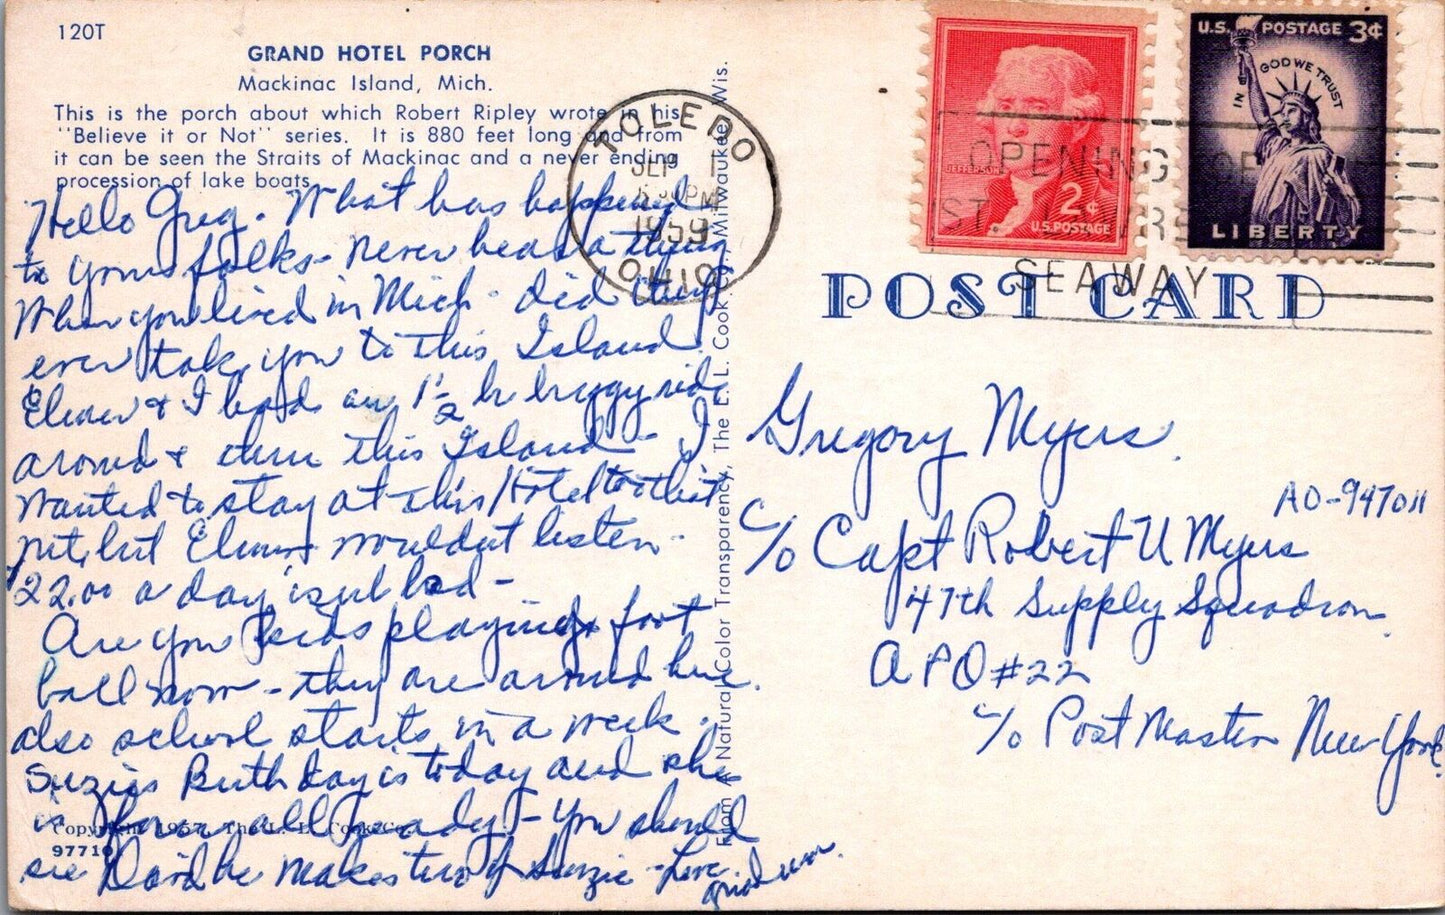 120T
GRAND HOTEL PORCH
Mackinac Island, Mich.
This is the porch about which Robert Ripley wrote in his
"Believe it or Not" series. It is 880 feet long and from
it can be seen the Straits of Mackinac and a never ending
procession of lake boats.
Hello Greg. What has happened
to your folks - never hear a thing
When you lived in Mich - did they
ever take you to this Island.
Elmer & I had an 1 1/2 hr buggy ride
around & thru this Island - I
wanted to stay at this Hotel to
nite but Elmer wouldn't listen -
22.00 a day isn't bad -
Are you kids playing foot
ball now - they are around here.
also school starts in a week.
Suzies Birthday is today and she
is four all ready - You should
see David he makes two of Suzie - Love
Copyright 1957, The L. L. Cook Co.
97710
From a Natural Color Transparency, The L. L. Cook Co., Milwaukee, Wis.
TOLEDO
SEP 1
PM
1959
OHIO
JEFFERSON
2¢
U.S. POSTAGE
U.S. POSTAGE 3¢
IN GOD WE TRUST
LIBERTY
OPENING OF
ST. LAWRENCE
SEAWAY
POST CARD
Gregory Myers.
AO-947011
c/o Capt Robert U Myers
47th Supply Squadron
APO #22
c/o Post Master New York.